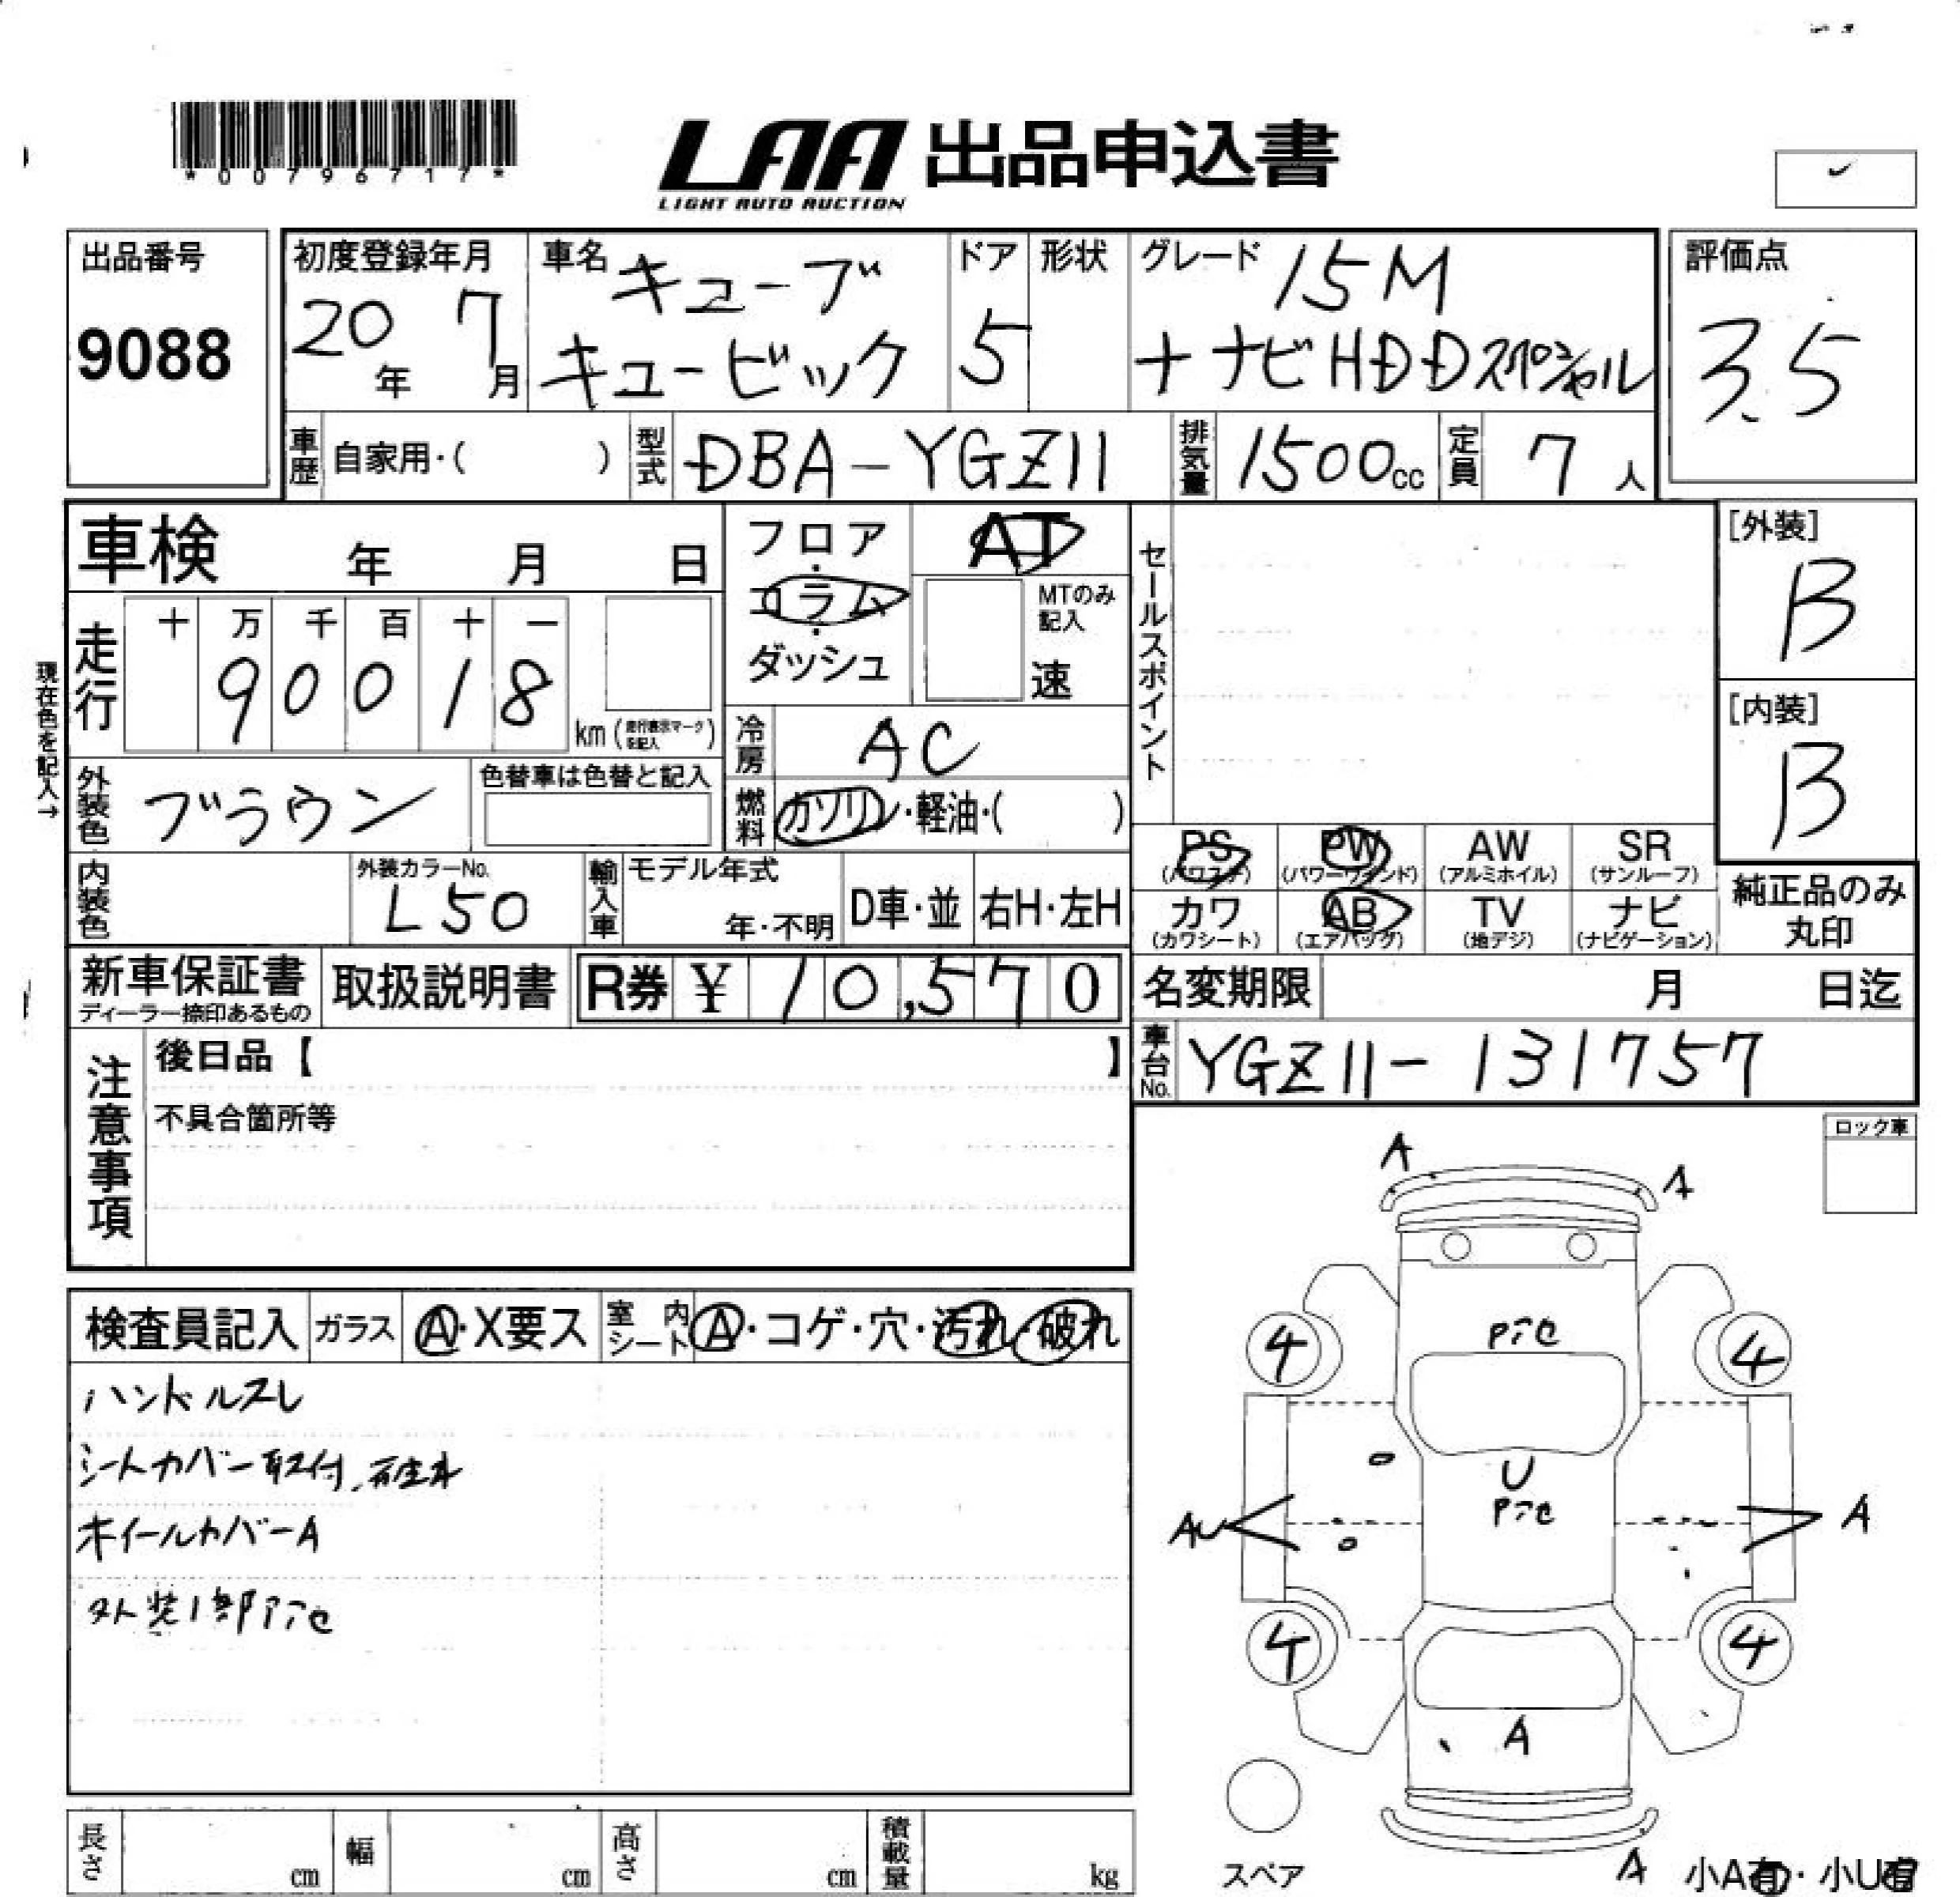 *00796717*
LAA 出品申込書
LIGHT AUTO AUCTION
出品番号
9088
初度登録年月
20年 7月
車名
キューブ
キュービック
ドア
5
形状
グレード
15M
+ナビHDDスペシャル
評価点
3.5
車歴 自家用・( )
型式 DBA-YGZ11
排気量 1500cc
定員 7人
車検 年 月 日
フロア・コラム・ダッシュ
AT
MTのみ記入
速
セールスポイント
[外装]
B
[内装]
B
現在色を記入→
走行
十 万 千 百 十 一
9 0 0 1 8
km (走行表示マークを記入)
冷房 AC
外装色 ブラウン
色替車は色替と記入
燃料 ガソリン・軽油・( )
内装色
外装カラーNo.
L50
輸入車
モデル年式
年・不明
D車・並
右H・左H
PS (パワステ)
PW (パワーウインド)
AW (アルミホイル)
SR (サンルーフ)
カワ (カワシート)
AB (エアバッグ)
TV (地デジ)
ナビ (ナビゲーション)
純正品のみ
丸印
新車保証書
ディーラー捺印あるもの
取扱説明書
R券 ¥ 10,570
名変期限 月 日迄
車台No. YGZ11-131757
注意事項
後日品【 】
不具合箇所等
ロック車
検査員記入
ガラス A・X要ス
室内シート A・コゲ・穴・汚れ・破れ
ハンドルスレ
シートカバー取付
ホイールカバーA
外装1部
A
A
4
4
U
AU
A
4
4
A
A
スペア
小A有・小U有
長さ cm
幅 cm
高さ cm
積載量 kg